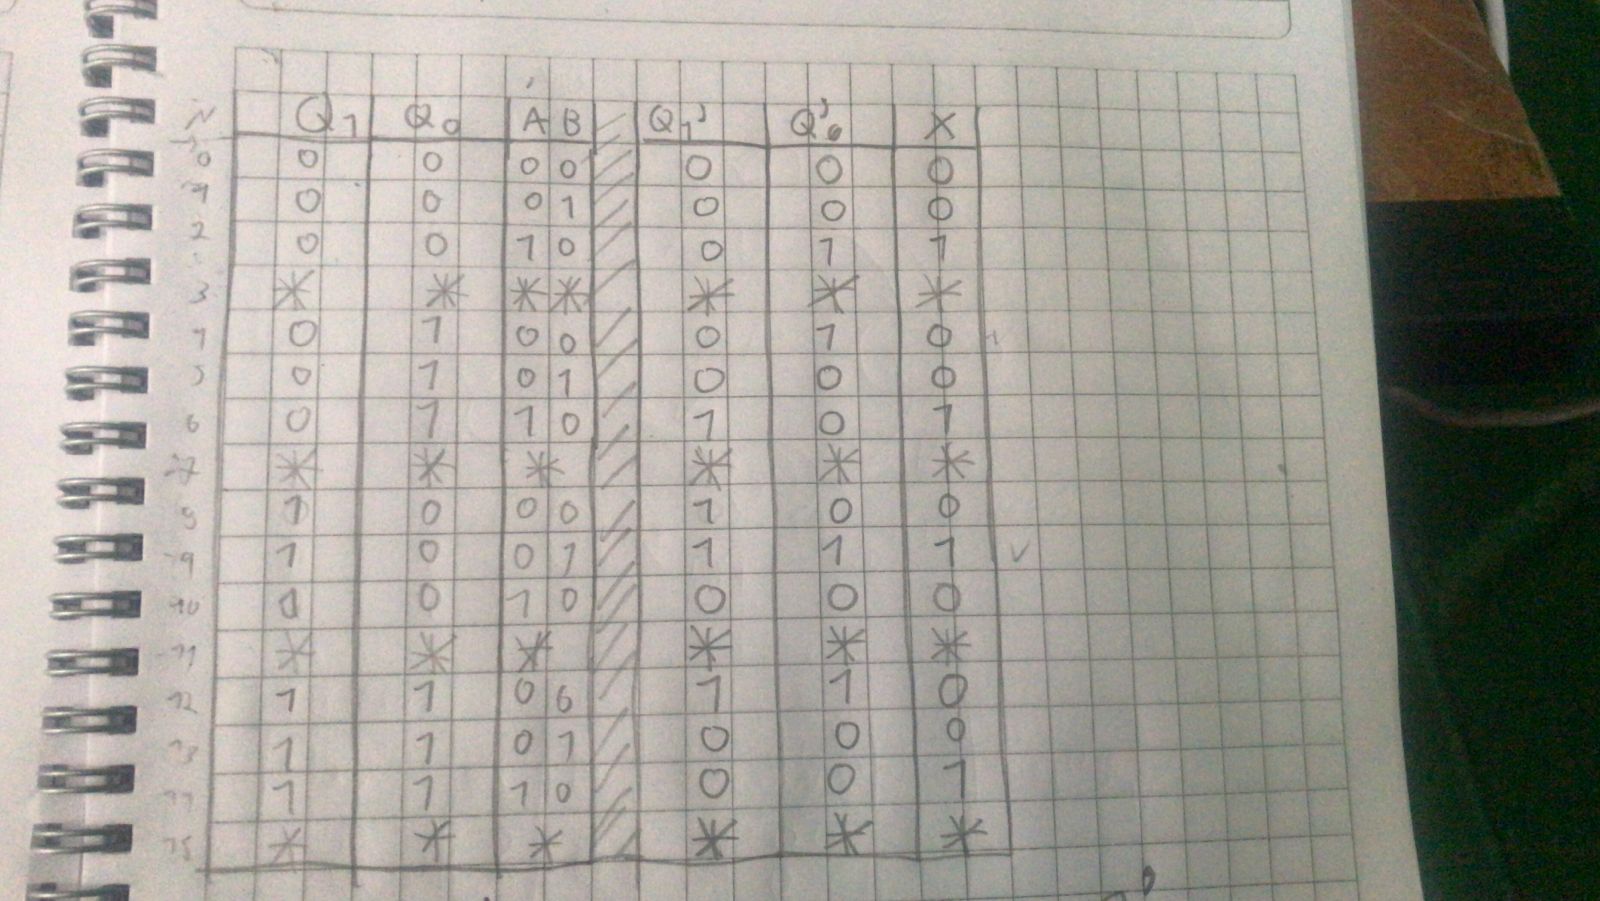 N Q1 Q0 A B Q1' Q'0 X
0 0 0 0 0 0 0 0
1 0 0 0 1 0 0 0
2 0 0 1 0 0 1 1
3 * * * * * * *
4 0 1 0 0 0 1 0
5 0 1 0 1 0 0 0
6 0 1 1 0 1 0 1
7 * * * * * *
8 1 0 0 0 1 0 0
9 1 0 0 1 1 1 1
10 1 0 1 0 0 0 0
11 * * * * * *
12 1 1 0 0 1 1 0
13 1 1 0 1 0 0 0
14 1 1 1 0 0 0 1
15 * * * * * *